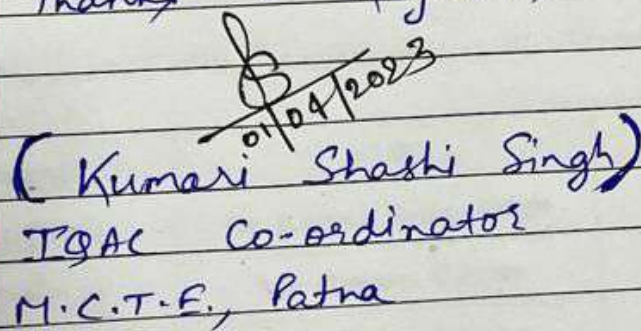 Thanks
01/04/2023
(Kumari Shashi Singh)
IQAC Co-ordinator
M.C.T.E., Patna